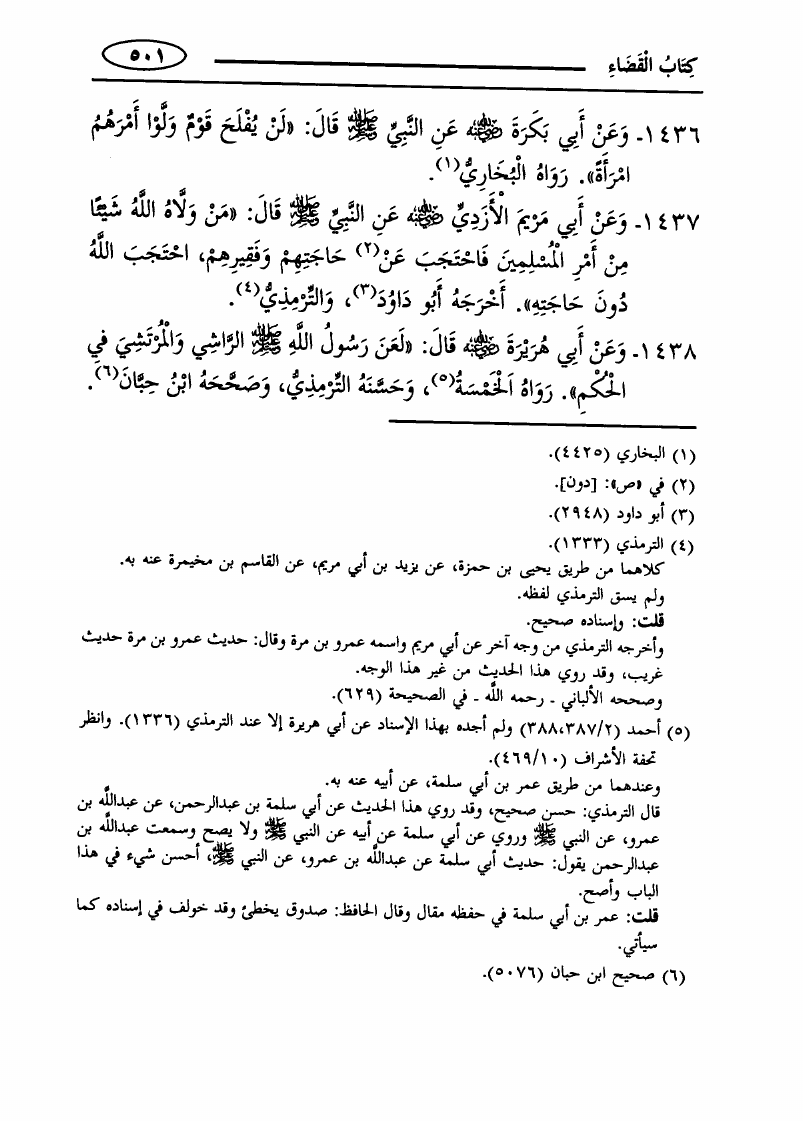 كِتَابُ الْقَضَاءِ ٥٠١
١٤٣٦ـ وَعَنْ أَبِي بَكَرَةَ رضي الله عنه عَنِ النَّبِيِّ ﷺ قَالَ: «لَنْ يُفْلَحَ قَوْمٌ وَلَّوْا أَمْرَهُمُ
امْرَأَةً». رَوَاهُ الْبُخَارِيُّ(١).
١٤٣٧ـ وَعَنْ أَبِي مَرْيَمَ الْأَزَدِيِّ رضي الله عنه عَنِ النَّبِيِّ ﷺ قَالَ: «مَنْ وَلَّاهُ اللَّهُ شَيْئًا
مِنْ أَمْرِ الْمُسْلِمِينَ فَاحْتَجَبَ عَنْ(٢) حَاجَتِهِمْ وَفَقِيرِهِمْ، احْتَجَبَ اللَّهُ
دُونَ حَاجَتِهِ». أَخْرَجَهُ أَبُو دَاوُدَ(٣)، وَالتِّرْمِذِيُّ(٤).
١٤٣٨ـ وَعَنْ أَبِي هُرَيْرَةَ رضي الله عنه قَالَ: «لَعَنَ رَسُولُ اللَّهِ ﷺ الرَّاشِي وَالْمُرْتَشِيَ فِي
الْحُكْمِ». رَوَاهُ اَلْخَمْسَةُ(٥)، وَحَسَّنَهُ التِّرْمِذِيُّ، وَصَحَّحَهُ ابْنُ حِبَّانَ(٦).
(١) البخاري (٤٤٢٥).
(٢) في «ص»: [دون].
(٣) أبو داود (٢٩٤٨).
(٤) الترمذي (١٣٣٣).
كلاهما من طريق يحيى بن حمزة، عن يزيد بن أبي مريم، عن القاسم بن مخيمرة عنه به.
ولم يسق الترمذي لفظه.
قلت: وإسناده صحيح.
وأخرجه الترمذي من وجه آخر عن أبي مريم واسمه عمرو بن مرة وقال: حديث عمرو بن مرة حديث
غريب، وقد روي هذا الحديث من غير هذا الوجه.
وصححه الألباني ـ رحمه اللَّه ـ في الصحيحة (٦٢٩).
(٥) أحمد (٣٨٨،٣٨٧/٢) ولم أجده بهذا الإسناد عن أبي هريرة إلا عند الترمذي (١٣٣٦). وانظر
تحفة الأشراف (٤٦٩/١٠).
وعندهما من طريق عمر بن أبي سلمة، عن أبيه عنه به.
قال الترمذي: حسن صحيح، وقد روي هذا الحديث عن أبي سلمة بن عبدالرحمن، عن عبداللَّه بن
عمرو، عن النبي ﷺ وروي عن أبي سلمة عن أبيه عن النبي ﷺ ولا يصح وسمعت عبداللَّه بن
عبدالرحمن يقول: حديث أبي سلمة عن عبداللَّه بن عمرو، عن النبي ﷺ، أحسن شيء في هذا
الباب وأصح.
قلت: عمر بن أبي سلمة في حفظه مقال وقال الحافظ: صدوق يخطئ وقد خولف في إسناده كما
سيأتي.
(٦) صحيح ابن حبان (٥٠٧٦).